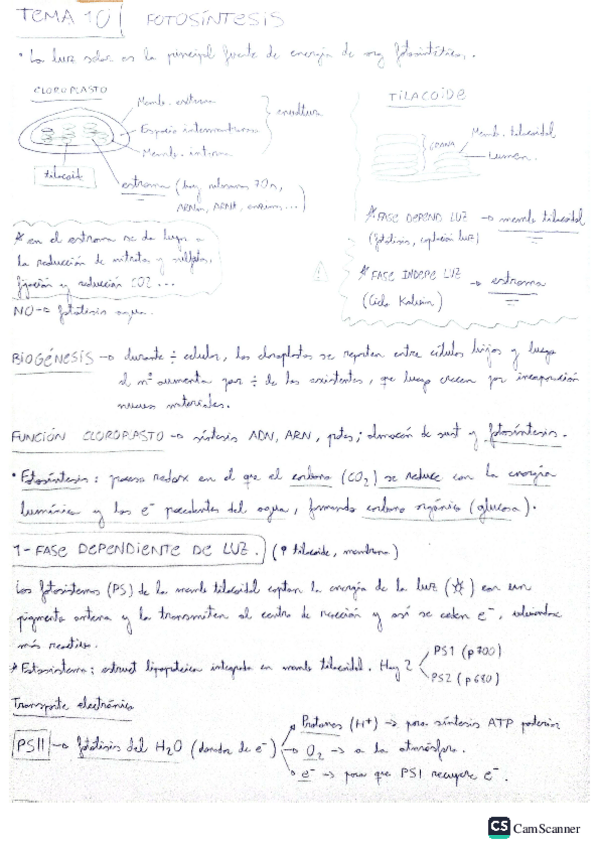 TEMA 10 FOTOSÍNTESIS
• La luz solar es la principal fuente de energía de org fotosintéticos.
CLOROPLASTO
Memb. externa
Espacio intermembrana
Memb. interna
envoltura
tilacoide
estroma (hay ribosomas 70s,
ARNm, ARNt, enzimas...)
TILACOIDE
GRANA
Memb. tilacoidal
Lumen.
* en el estroma se da lugar a
la reducción de nitrato y sulfato,
fijación y reducción CO2 ...
NO → fotolisis agua.
* FASE DEPEND LUZ → memb tilacoidal
(fotolisis, captación luz)
* FASE INDEPE LUZ → estroma
(Ciclo Kalvin)
BIOGÉNESIS → durante ÷ celular, los cloroplastos se reparten entre células hijas y luego
el nº aumenta por ÷ de los existentes, que luego crecen por incorporación
nuevos materiales.
FUNCIÓN CLOROPLASTO → síntesis ADN, ARN, ; almacén de sust y fotosíntesis.
• Fotosíntesis: proceso redox en el que el carbono (CO2) se reduce con la energía
lumínica y los e⁻ procedentes del agua, formando carbono orgánico (glucosa).
1- FASE DEPENDIENTE DE LUZ. ( tilacoide, membrana)
Los fotosistemas (PS) de la memb tilacoidal captan la energía de la luz con un
pigmento antena y la transmiten al centro de reacción y así se ceden e⁻, volviéndose
más reactivo.
* Fotosistema: estruct lipoproteica integrada en memb tilacoidal. Hay 2
PS1 (p700)
PS2 (p680)
Transporte electrónico
PSII → fotolisis del H2O (donador de e⁻)
Protones (H+) → para síntesis ATP posterior
O2 → a la atmósfera.
e⁻ → para que PS1 recupere e⁻.
CS CamScanner